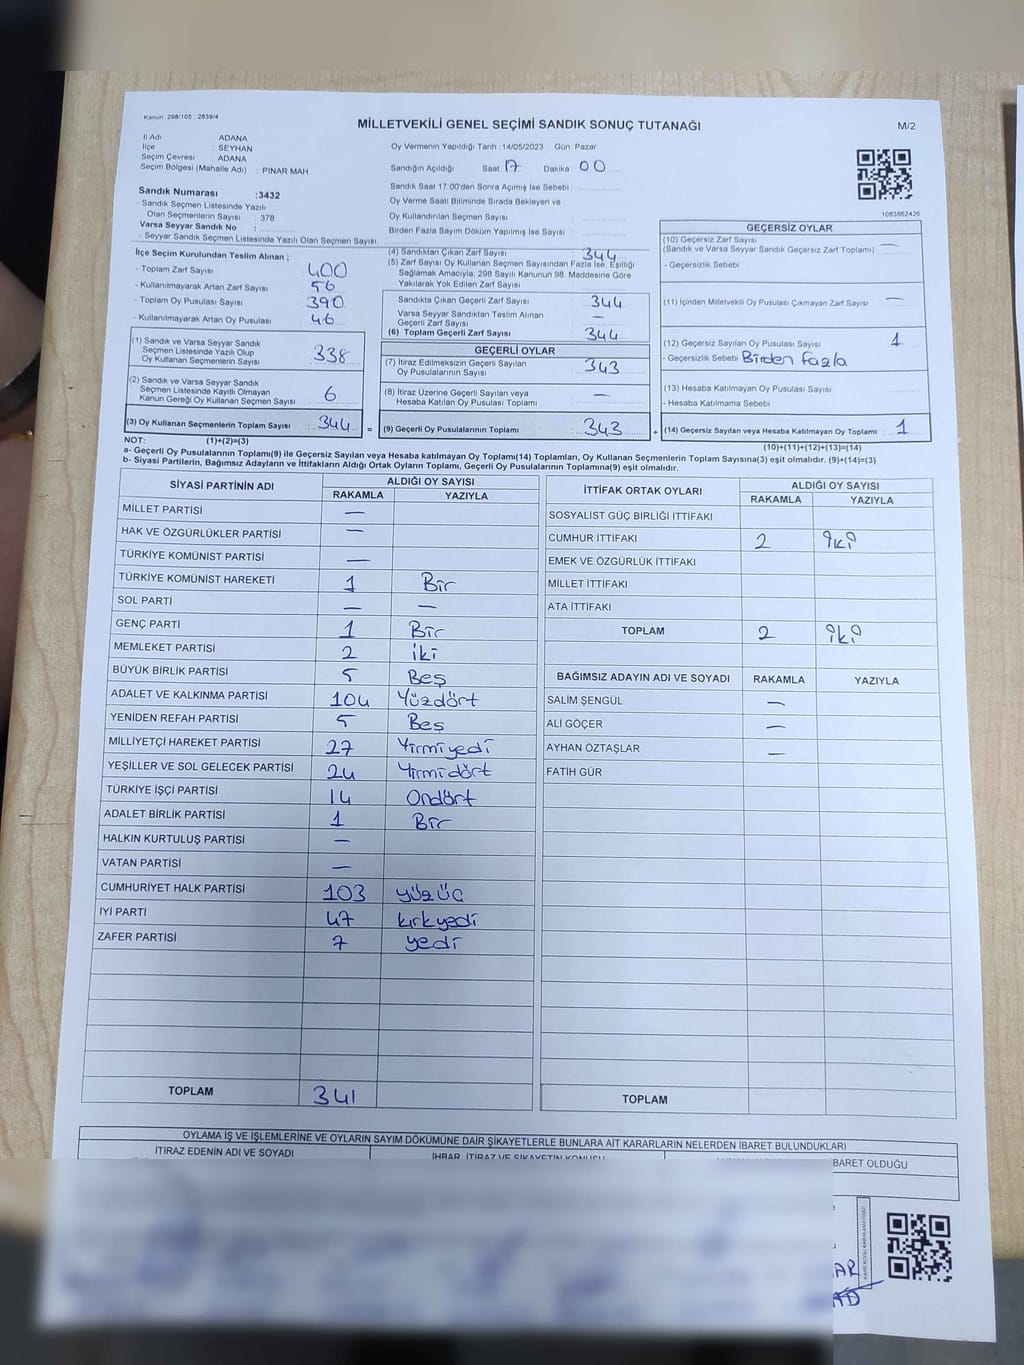 Kanun: 298/105 , 2839/4
MİLLETVEKİLİ GENEL SEÇİMİ SANDIK SONUÇ TUTANAĞI
M/2
İl Adı : ADANA
İlçe : SEYHAN
Seçim Çevresi : ADANA
Seçim Bölgesi (Mahalle Adı) : PINAR MAH.
Oy Vermenin Yapıldığı Tarih :14/05/2023 Gün: Pazar
Sandığın Açıldığı Saat 17 Dakika 00
Sandık Saat 17:00'den Sonra Açımış İse Sebebi :
Oy Verme Saati Bitiminde Sırada Bekleyen ve
Oy Kullandırılan Seçmen Sayısı :
Birden Fazla Sayım Döküm Yapılmış İse Sayısı :
Sandık Numarası :3432
- Sandık Seçmen Listesinde Yazılı
Olan Seçmenlerin Sayısı : 378
Varsa Seyyar Sandık No :
- Seyyar Sandık Seçmen Listesinde Yazılı Olan Seçmen Sayısı
1083862426
İlçe Seçim Kurulundan Teslim Alınan ;
- Toplam Zarf Sayısı : 400
- Kullanılmayarak Artan Zarf Sayısı : 56
- Toplam Oy Pusulası Sayısı : 390
- Kullanılmayarak Artan Oy Pusulası : 46
(1) Sandık ve Varsa Seyyar Sandık
Seçmen Listesinde Yazılı Olup
Oy Kullanan Seçmenlerin Sayısı : 338
(2) Sandık ve Varsa Seyyar Sandık
Seçmen Listesinde Kayıtlı Olmayan
Kanun Gereği Oy Kullanan Seçmen Sayısı : 6
(3) Oy Kullanan Seçmenlerin Toplam Sayısı : 344 =
(4) Sandıktan Çıkan Zarf Sayısı : 344
(5) Zarf Sayısı Oy Kullanan Seçmen Sayısından Fazla İse, Eşitliği
Sağlamak Amacıyla, 298 Sayılı Kanunun 98. Maddesine Göre
Yakılarak Yok Edilen Zarf Sayısı :
Sandıkta Çıkan Geçerli Zarf Sayısı : 344
Varsa Seyyar Sandıktan Teslim Alınan
Geçerli Zarf Sayısı : —
(6) Toplam Geçerli Zarf Sayısı : 344
GEÇERLİ OYLAR
(7) İtiraz Edilmeksizin Geçerli Sayılan
Oy Pusulalarının Sayısı : 343
(8) İtiraz Üzerine Geçerli Sayılan veya
Hesaba Katılan Oy Pusulası Toplamı : —
(9) Geçerli Oy Pusulalarının Toplamı : 343 +
GEÇERSİZ OYLAR
(10) Geçersiz Zarf Sayısı
(Sandık ve Varsa Seyyar Sandık Geçersiz Zarf Toplamı) : —
- Geçersizlik Sebebi :
(11) İçinden Milletvekili Oy Pusulası Çıkmayan Zarf Sayısı : —
(12) Geçersiz Sayılan Oy Pusulası Sayısı : 1
- Geçersizlik Sebebi : Birden Fazla
(13) Hesaba Katılmayan Oy Pusulası Sayısı :
- Hesaba Katılmama Sebebi :
(14) Geçersiz Sayılan veya Hesaba Katılmayan Oy Toplamı : 1
NOT: (1)+(2)=(3)
(10)+(11)+(12)+(13)=(14)
a- Geçerli Oy Pusulalarının Toplamı(9) ile Geçersiz Sayılan veya Hesaba katılmayan Oy Toplamı(14) Toplamları, Oy Kullanan Seçmenlerin Toplam Sayısına(3) eşit olmalıdır. (9)+(14)=(3)
b- Siyasi Partilerin, Bağımsız Adayların ve İttifakların Aldığı Ortak Oyların Toplamı, Geçerli Oy Pusulalarının Toplamına(9) eşit olmalıdır.
SİYASİ PARTİNİN ADI ALDIĞI OY SAYISI
RAKAMLA YAZIYLA
MİLLET PARTİSİ —
HAK VE ÖZGÜRLÜKLER PARTİSİ —
TÜRKİYE KOMÜNİST PARTİSİ —
TÜRKİYE KOMÜNİST HAREKETİ 1 Bir
SOL PARTİ — —
GENÇ PARTİ 1 Bir
MEMLEKET PARTİSİ 2 iki
BÜYÜK BİRLİK PARTİSİ 5 Beş
ADALET VE KALKINMA PARTİSİ 104 Yüzdört
YENİDEN REFAH PARTİSİ 5 Beş
MİLLİYETÇİ HAREKET PARTİSİ 27 Yirmiyedi
YEŞİLLER VE SOL GELECEK PARTİSİ 24 Yirmidört
TÜRKİYE İŞÇİ PARTİSİ 14 Ondört
ADALET BİRLİK PARTİSİ 1 Bir
HALKIN KURTULUŞ PARTİSİ —
VATAN PARTİSİ —
CUMHURİYET HALK PARTİSİ 103 yüzüç
İYİ PARTİ 47 kırkyedi
ZAFER PARTİSİ 7 yedi
TOPLAM 341
İTTİFAK ORTAK OYLARI ALDIĞI OY SAYISI
RAKAMLA YAZIYLA
SOSYALİST GÜÇ BİRLİĞİ İTTİFAKI
CUMHUR İTTİFAKI 2 iki
EMEK VE ÖZGÜRLÜK İTTİFAKI
MİLLET İTTİFAKI
ATA İTTİFAKI
TOPLAM 2 iki
BAĞIMSIZ ADAYIN ADI VE SOYADI RAKAMLA YAZIYLA
SALİM ŞENGÜL —
ALİ GÖÇER —
AYHAN ÖZTAŞLAR —
FATİH GÜR
TOPLAM
OYLAMA İŞ VE İŞLEMLERİNE VE OYLARIN SAYIM DÖKÜMÜNE DAİR ŞİKAYETLERLE BUNLARA AİT KARARLARIN NELERDEN İBARET BULUNDUKLARI
İTİRAZ EDENİN ADI VE SOYADI
İHBAR, İTİRAZ VE ŞİKAYETİN KONUSU
İBARET OLDUĞU